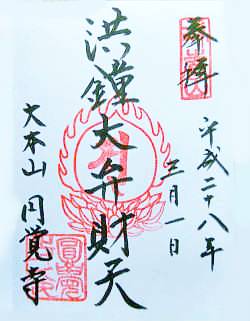 奉拝
平成二十八年
三月一日
洪鐘大弁財天
大本山 円覚寺